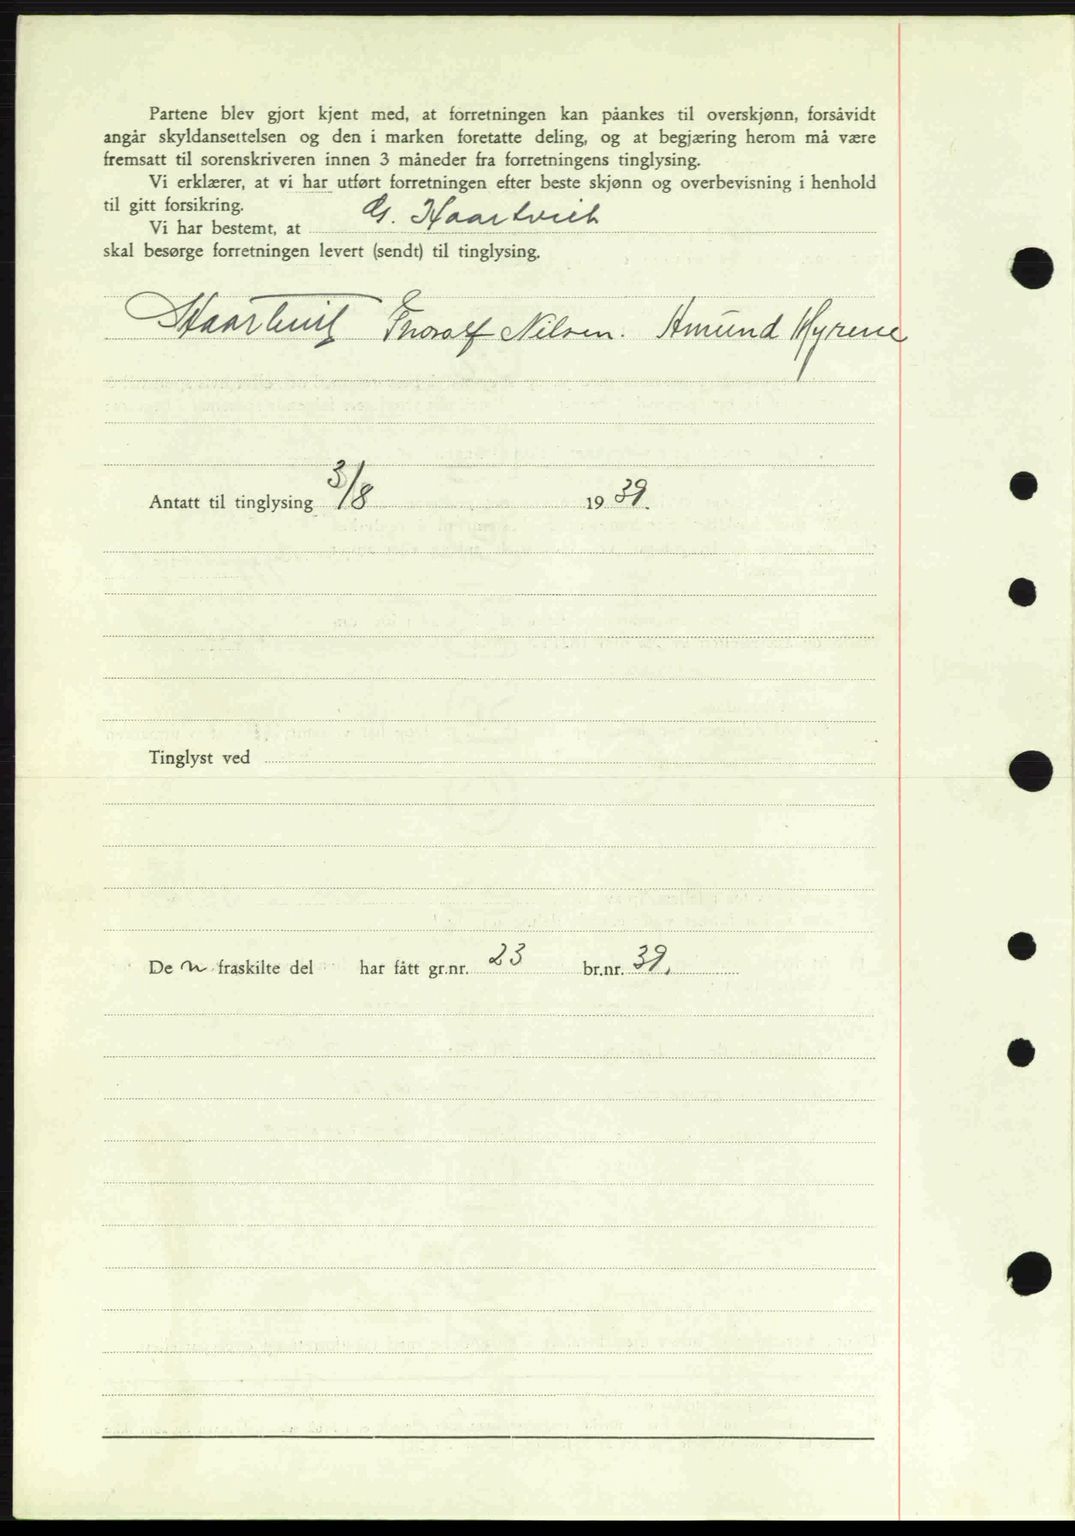 Partene blev gjort kjent med, at forretningen kan påankes til overskjønn, forsåvidt
angår skyldansettelsen og den i marken foretatte deling, og at begjæring herom må være
fremsatt til sorenskriveren innen 3 måneder fra forretningens tinglysing.
Vi erklærer, at vi har utført forretningen efter beste skjønn og overbevisning i henhold
til gitt forsikring.
Vi har bestemt, at G. Haartveit
skal besørge forretningen levert (sendt) til tinglysing.
GHaartveit Thoralf Nilsen. Amund Myrene
Antatt til tinglysing 3/8 1939.
Tinglyst ved
De n fraskilte del har fått gr.nr. 23 br.nr. 39.